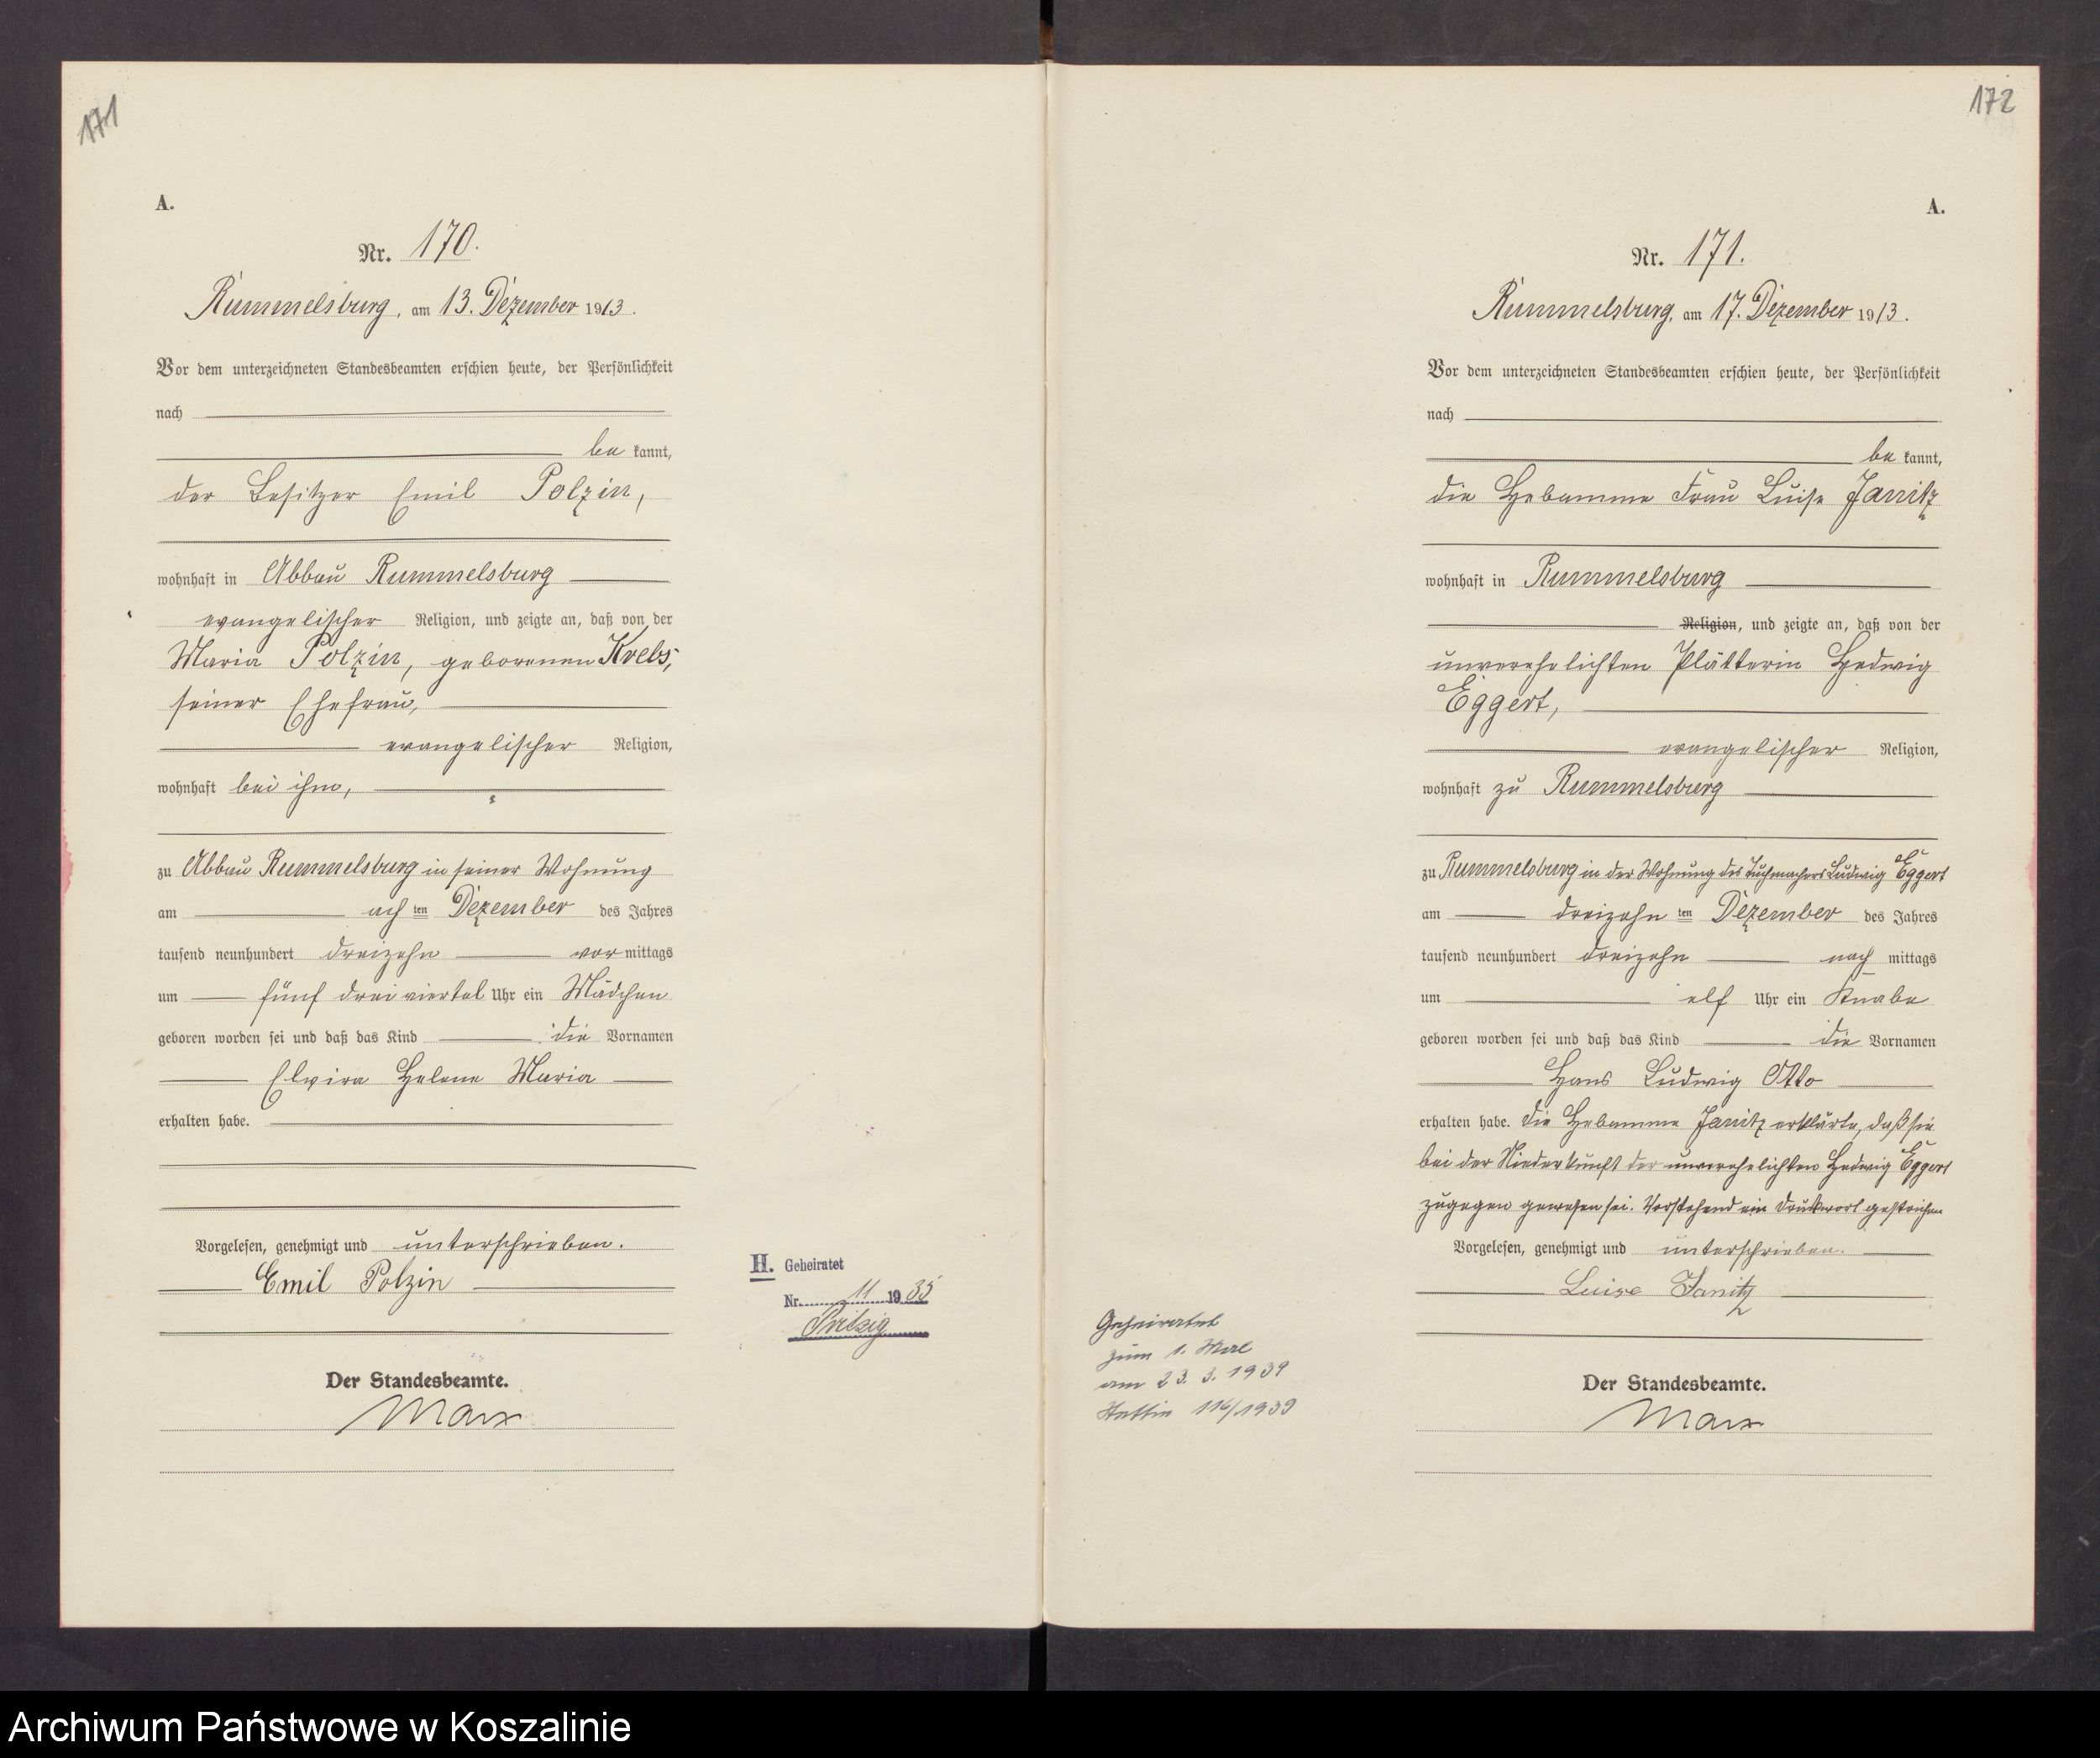 171
A.
Nr. 170.
Rummelsburg, am 13. Dezember 1913.
Vor dem unterzeichneten Standesbeamten erschien heute, der Persönlichkeit
nach
be kannt,
der Besitzer Emil Polzin,
wohnhaft in Abbau Rummelsburg
evangelischer Religion, und zeigte an, daß von der
Maria Polzin, geborenen Krebs,
seiner Ehefrau,
evangelischer Religion,
wohnhaft bei ihm,
zu Abbau Rummelsburg in seiner Wohnung
am ach ten Dezember des Jahres
tausend neunhundert dreizehn vor mittags
um fünf dreiviertel Uhr ein Mädchen
geboren worden sei und daß das Kind die Vornamen
Elvira Helene Maria
erhalten habe.
Vorgelesen, genehmigt und unterschrieben.
Emil Polzin
Der Standesbeamte.
Marx
H. Geheiratet
Nr. 11 1935
Pritzig
172
A.
Nr. 171.
Rummelsburg, am 17. Dezember 1913.
Vor dem unterzeichneten Standesbeamten erschien heute, der Persönlichkeit
nach
be kannt,
die Hebamme Frau Luise Janitz
wohnhaft in Rummelsburg
Religion, und zeigte an, daß von der
unverehelichten Plätterin Hedwig
Eggert,
evangelischer Religion,
wohnhaft zu Rummelsburg
zu Rummelsburg in der Wohnung des Tuchmachers Ludwig Eggert
am dreizehn ten Dezember des Jahres
tausend neunhundert dreizehn nach mittags
um elf Uhr ein Knabe
geboren worden sei und daß das Kind die Vornamen
Hans Ludwig Otto
erhalten habe. Die Hebamme Janitz erklärte, daß sie
bei der Niederkunft der unverehelichten Hedwig Eggert
zugegen gewesen sei. Vorstehend ein Druckwort gestrichen
Vorgelesen, genehmigt und unterschrieben.
Luise Janitz
Der Standesbeamte.
Marx
Geheiratet
zum 1. Mal
am 23. 3. 1939
Stettin 116/1939
Archiwum Państwowe w Koszalinie